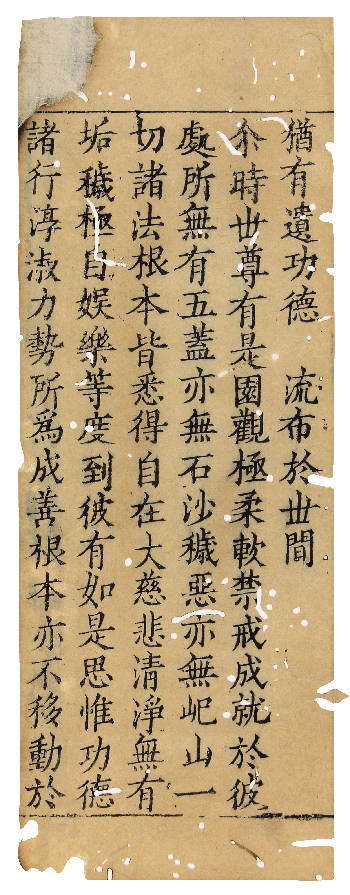 猶有遺功德　流布於丗間
尒時丗尊有是園觀極柔軟禁戒成就於彼
處所無有五蓋亦無石沙穢惡亦無屺山一
切諸法根本皆悉得自在大慈悲清淨無有
垢穢極自娛樂等度到彼有如是思惟功德
諸行淳淑力勢所爲成善根本亦不移動於